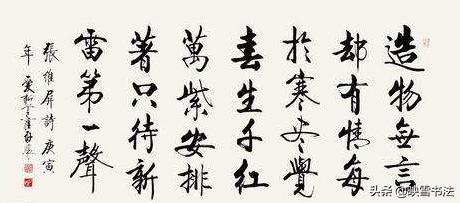 造物無言
却有情每
於寒尽覺
春生千紅
萬紫安排
著只待新
雷第一聲
張維屏詩庚寅
年
头条@映雪书法